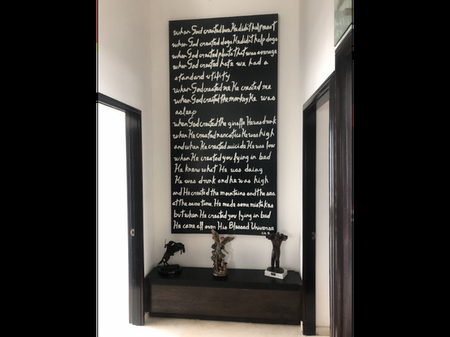 when God created love He didn't help most
when God created dogs He didn't help dogs
when God created plants that was average
when God created hate we had a
standard utility
when God created me He created me
when God created the monkey He was
asleep
when God created the giraffe He was drunk
when He created narcotics He was high
and when He created suicide He was low
when He created you lying in bed
He knew what He was doing
He was drunk and he was high
and He created the mountains and the sea
at the same time He made some mistakes
but when He created you lying in bed
He came all over His Blessed Universe